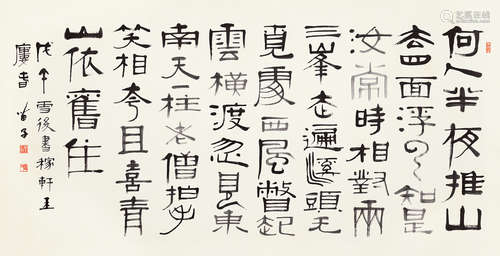 何人半夜推山
去四面浮云知是
汝常時相對兩
三峯走遍溪頭无
覓處西風瞥起
雲橫渡忽見東
南天一柱老僧拍手
笑相夸且喜青
山依舊住
戊午雪後書稼軒玉
廔春